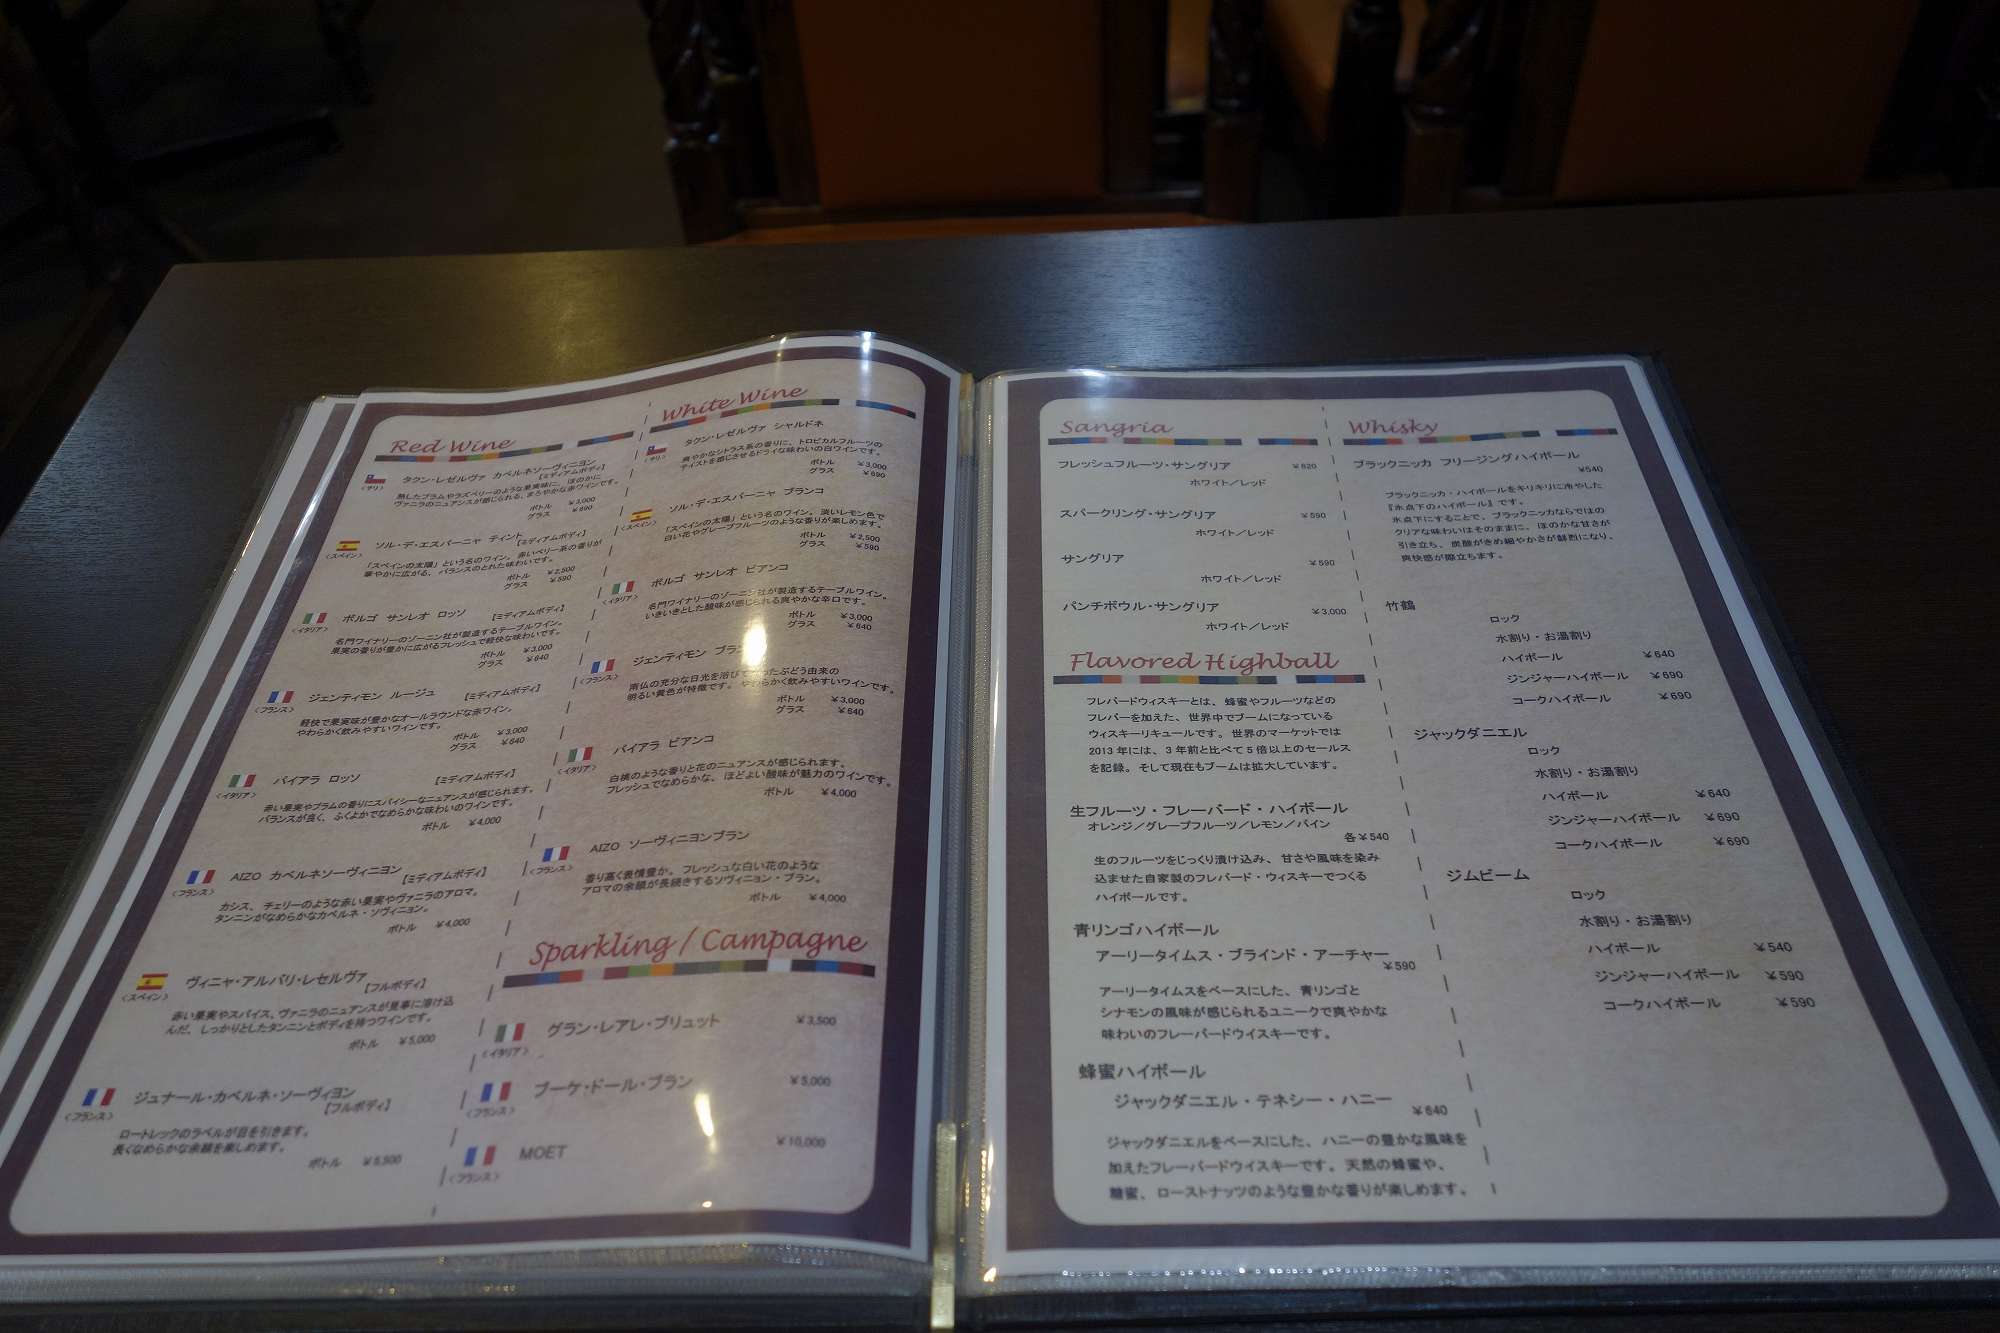 Red Wine
<チリ>
タクン・レゼルヴァ カベルネソーヴィニヨン
【ミディアムボディ】
熟したプラムやラズベリーのような果実味に、ほのかに
ヴァニラのニュアンスが感じられる、まろやかな赤ワインです。
ボトル ¥3,000
グラス ¥690
<スペイン>
ソル・デ・エスパーニャ ティント
【ミディアムボディ】
「スペインの太陽」という名のワイン。赤いベリー系の香りが
華やかに広がる、バランスのとれた味わいです。
ボトル ¥2,500
グラス ¥590
<イタリア>
ボルゴ サンレオ ロッソ 【ミディアムボディ】
名門ワイナリーのゾーニン社が製造するテーブルワイン。
果実の香りが豊かに広がるフレッシュで軽快な味わいです。
ボトル ¥3,000
グラス ¥640
<フランス>
ジェンティモン ルージュ 【ミディアムボディ】
軽快で果実味が豊かなオールラウンドな赤ワイン。
やわらかく飲みやすいワインです。
ボトル ¥3,000
グラス ¥640
<イタリア>
バイアラ ロッソ 【ミディアムボディ】
赤い果実やプラムの香りにスパイシーなニュアンスが感じられます。
バランスが良く、ふくよかでなめらかな味わいのワインです。
ボトル ¥4,000
<フランス>
AIZO カベルネソーヴィニヨン
【ミディアムボディ】
カシス、チェリーのような赤い果実やヴァニラのアロマ。
タンニンがなめらかなカベルネ・ソヴィニョン。
ボトル ¥4,000
<スペイン>
ヴィニャ・アルバリ・レセルヴァ
【フルボディ】
赤い果実やスパイス、ヴァニラのニュアンスが見事に溶け込
んだ、しっかりとしたタンニンとボディを持つワインです。
ボトル ¥5,000
<フランス>
ジュナール・カベルネ・ソーヴィヨン
【フルボディ】
ロートレックのラベルが目を引きます。
長くなめらかな余韻を楽しめます。
ボトル ¥5,500
White Wine
<チリ>
タクン・レゼルヴァ シャルドネ
爽やかなシトラス系の香りに、トロピカルフルーツの
テイストを感じさせるドライな味わいの白ワインです。
ボトル ¥3,000
グラス ¥690
<スペイン>
ソル・デ・エスパーニャ ブランコ
「スペインの太陽」という名のワイン。淡いレモン色で
白い花やグレープフルーツのような香りが楽しめます。
ボトル ¥2,500
グラス ¥590
<イタリア>
ボルゴ サンレオ ビアンコ
名門ワイナリーのゾーニン社が製造するテーブルワイン。
いきいきとした酸味が感じられる爽やかな辛口です。
ボトル ¥3,000
グラス ¥640
<フランス>
ジェンティモン ブラン
南仏の充分な日光を浴びて育ったぶどう由来の
明るい黄色が特徴です。 やわらかく飲みやすいワインです。
ボトル ¥3,000
グラス ¥640
<イタリア>
バイアラ ビアンコ
白桃のような香りと花のニュアンスが感じられます。
フレッシュでなめらかな、ほどよい酸味が魅力のワインです。
ボトル ¥4,000
<フランス>
AIZO ソーヴィニヨンブラン
香り高く表情豊か。フレッシュな白い花のような
アロマの余韻が長続きするソヴィニョン・ブラン。
ボトル ¥4,000
Sparkling / Campagne
<イタリア>
グラン・レアレ・ブリュット ¥3,500
<フランス>
ブーケ・ドール・ブラン ¥5,000
<フランス>
MOET ¥10,000
Sangria
フレッシュフルーツ・サングリア ¥820
ホワイト／レッド
スパークリング・サングリア ¥590
ホワイト／レッド
サングリア ¥590
ホワイト／レッド
パンチボウル・サングリア ¥3,000
ホワイト／レッド
Flavored Highball
フレバードウィスキーとは、蜂蜜やフルーツなどの
フレバーを加えた、世界中でブームになっている
ウィスキーリキュールです。世界のマーケットでは
2013年には、3年前と比べて5倍以上のセールス
を記録。そして現在もブームは拡大しています。
生フルーツ・フレーバード・ハイボール
オレンジ／グレープフルーツ／レモン／パイン
各¥540
生のフルーツをじっくり漬け込み、甘さや風味を染み
込ませた自家製のフレバード・ウィスキーでつくる
ハイボールです。
青リンゴハイボール
アーリータイムス・ブラインド・アーチャー
¥590
アーリータイムスをベースにした、青リンゴと
シナモンの風味が感じられるユニークで爽やかな
味わいのフレーバードウイスキーです。
蜂蜜ハイボール
ジャックダニエル・テネシー・ハニー
¥640
ジャックダニエルをベースにした、ハニーの豊かな風味を
加えたフレーバードウイスキーです。天然の蜂蜜や、
糖蜜、ローストナッツのような豊かな香りが楽しめます。
Whisky
ブラックニッカ フリージングハイボール
¥540
ブラックニッカ・ハイボールをキリキリに冷やした
『氷点下のハイボール』です。
氷点下にすることで、ブラックニッカならではの
クリアな味わいはそのままに、ほのかな甘さが
引き立ち、炭酸がきめ細やかさが鮮烈になり、
爽快感が際立ちます。
竹鶴
ロック
水割り・お湯割り
ハイボール ¥640
ジンジャーハイボール ¥690
コークハイボール ¥690
ジャックダニエル
ロック
水割り・お湯割り
ハイボール ¥640
ジンジャーハイボール ¥690
コークハイボール ¥690
ジムビーム
ロック
水割り・お湯割り
ハイボール ¥540
ジンジャーハイボール ¥590
コークハイボール ¥590